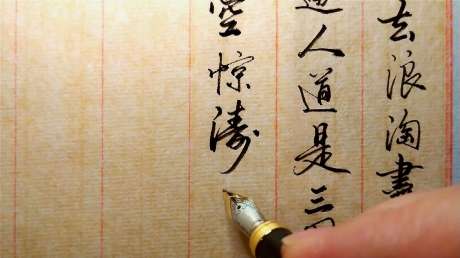 去浪淘盡
人道是三國
空惊涛